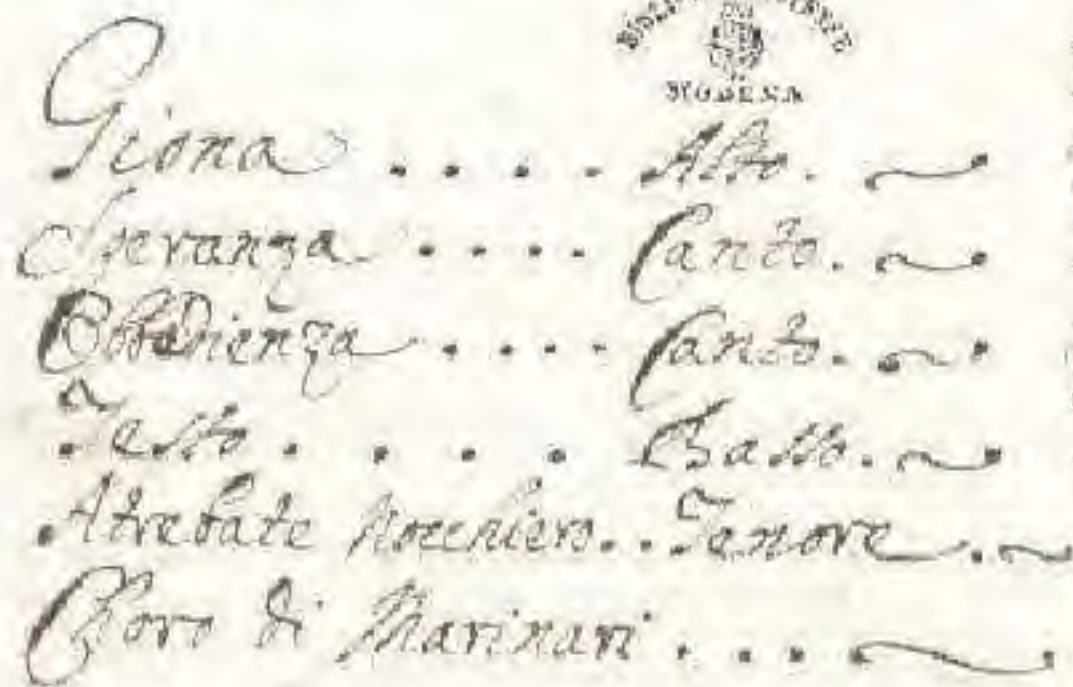 MODENA
Giona . . . . Alto.
Speranza . . . . Canto.
Obbedienza . . . . Canto.
Testo . . . . Basso.
Atrebate Nocchiero . . Tenore .
Choro di Marinari . . . .